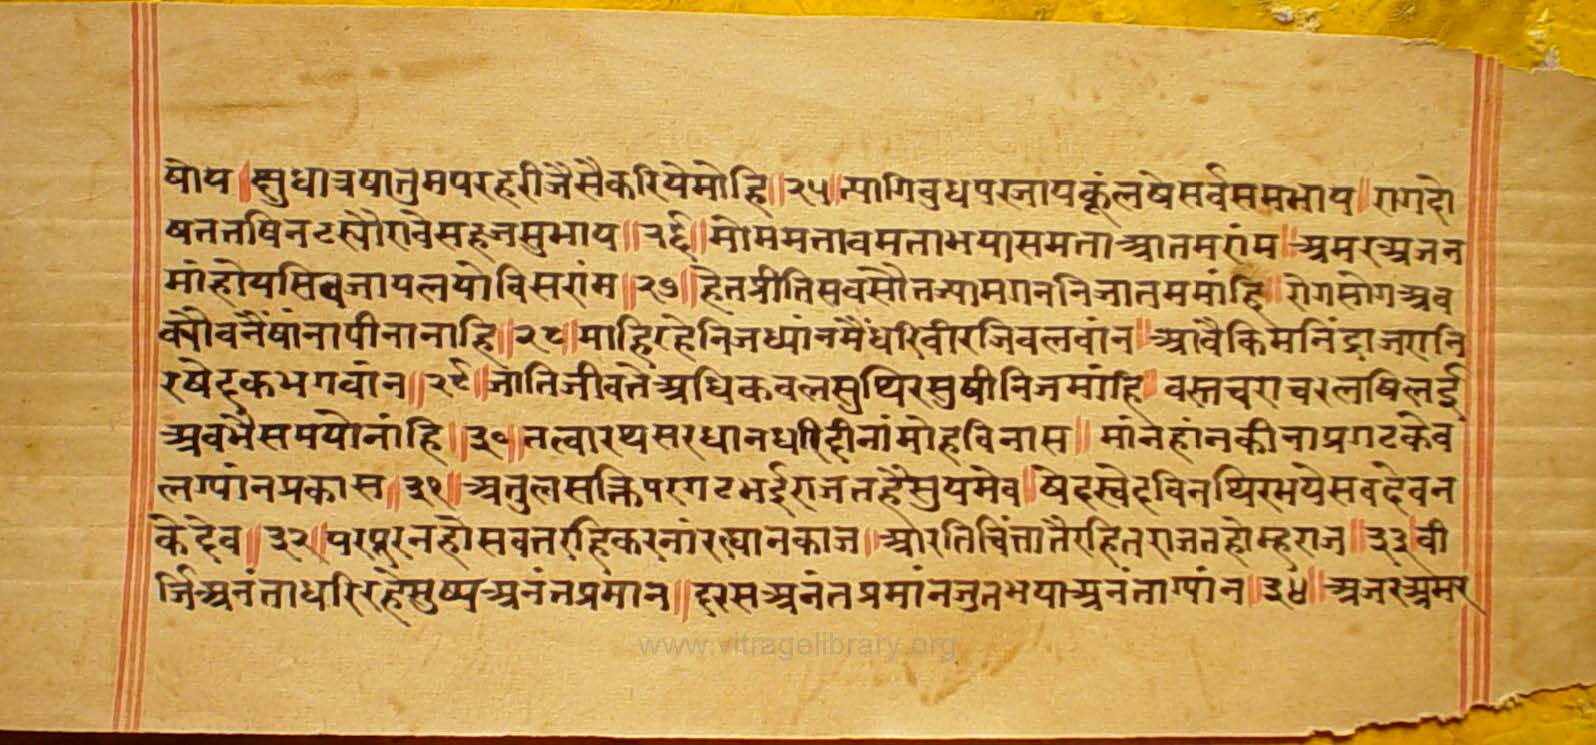 षोय । सुधात्रषातुमपरहरीजैसैकरियेमोहि ॥ २५ ॥ त्यागिवुधपरजायकूंलषेसर्वसमभाय ॥ रागदो
षततषिनटस्यौराचेसहजसुभाय ॥ २६ ॥ मोममतावमताभयासमताआतमरांम ॥ अमरअजन
मांहोयसिवजायलयोविसरांम ॥ २७ ॥ हेतप्रीतिसवसौतज्यामगननिजातममांहि ॥ रोगसोगअव
क्यौवनैंषांनापीनानाहि ॥ २८ ॥ माहिरहेनिजध्यांनमैंधरिवीरजिवलवांन ॥ आवैकिमनिंद्राजरानि
रषेदकभगवांन ॥ २९ ॥ जातिजीवतैअधिकवलसुथिरसुषीनिजमांहि ॥ वस्तचराचरलषिलई
अवभैसमयोनांहि ॥ ३० ॥ तत्वारथसरधानधरिदीनांमोहविनास ॥ मांनहांनकीनाप्रगटकेव
लग्यांनप्रकास ॥ ३१ ॥ अतुलसक्तिपरगटभईराजतहैसुयमेव ॥ षेदस्वेदविनथिरभयेसवदेवन
केदेव ॥ ३२ ॥ परपूरनहौसवतरहिकरनांरह्यानकाज ॥ आरतिचिंतातैरहितराजतहोम्हराज ॥ ३३ ॥ वी
र्जिअनंताधरिरहैसुष्यअनंतप्रमान ॥ दरसअनंतप्रमांनजुतभयाअनंताग्यांन ॥ ३४ ॥ अजरअमर
www.vitragelibrary.org